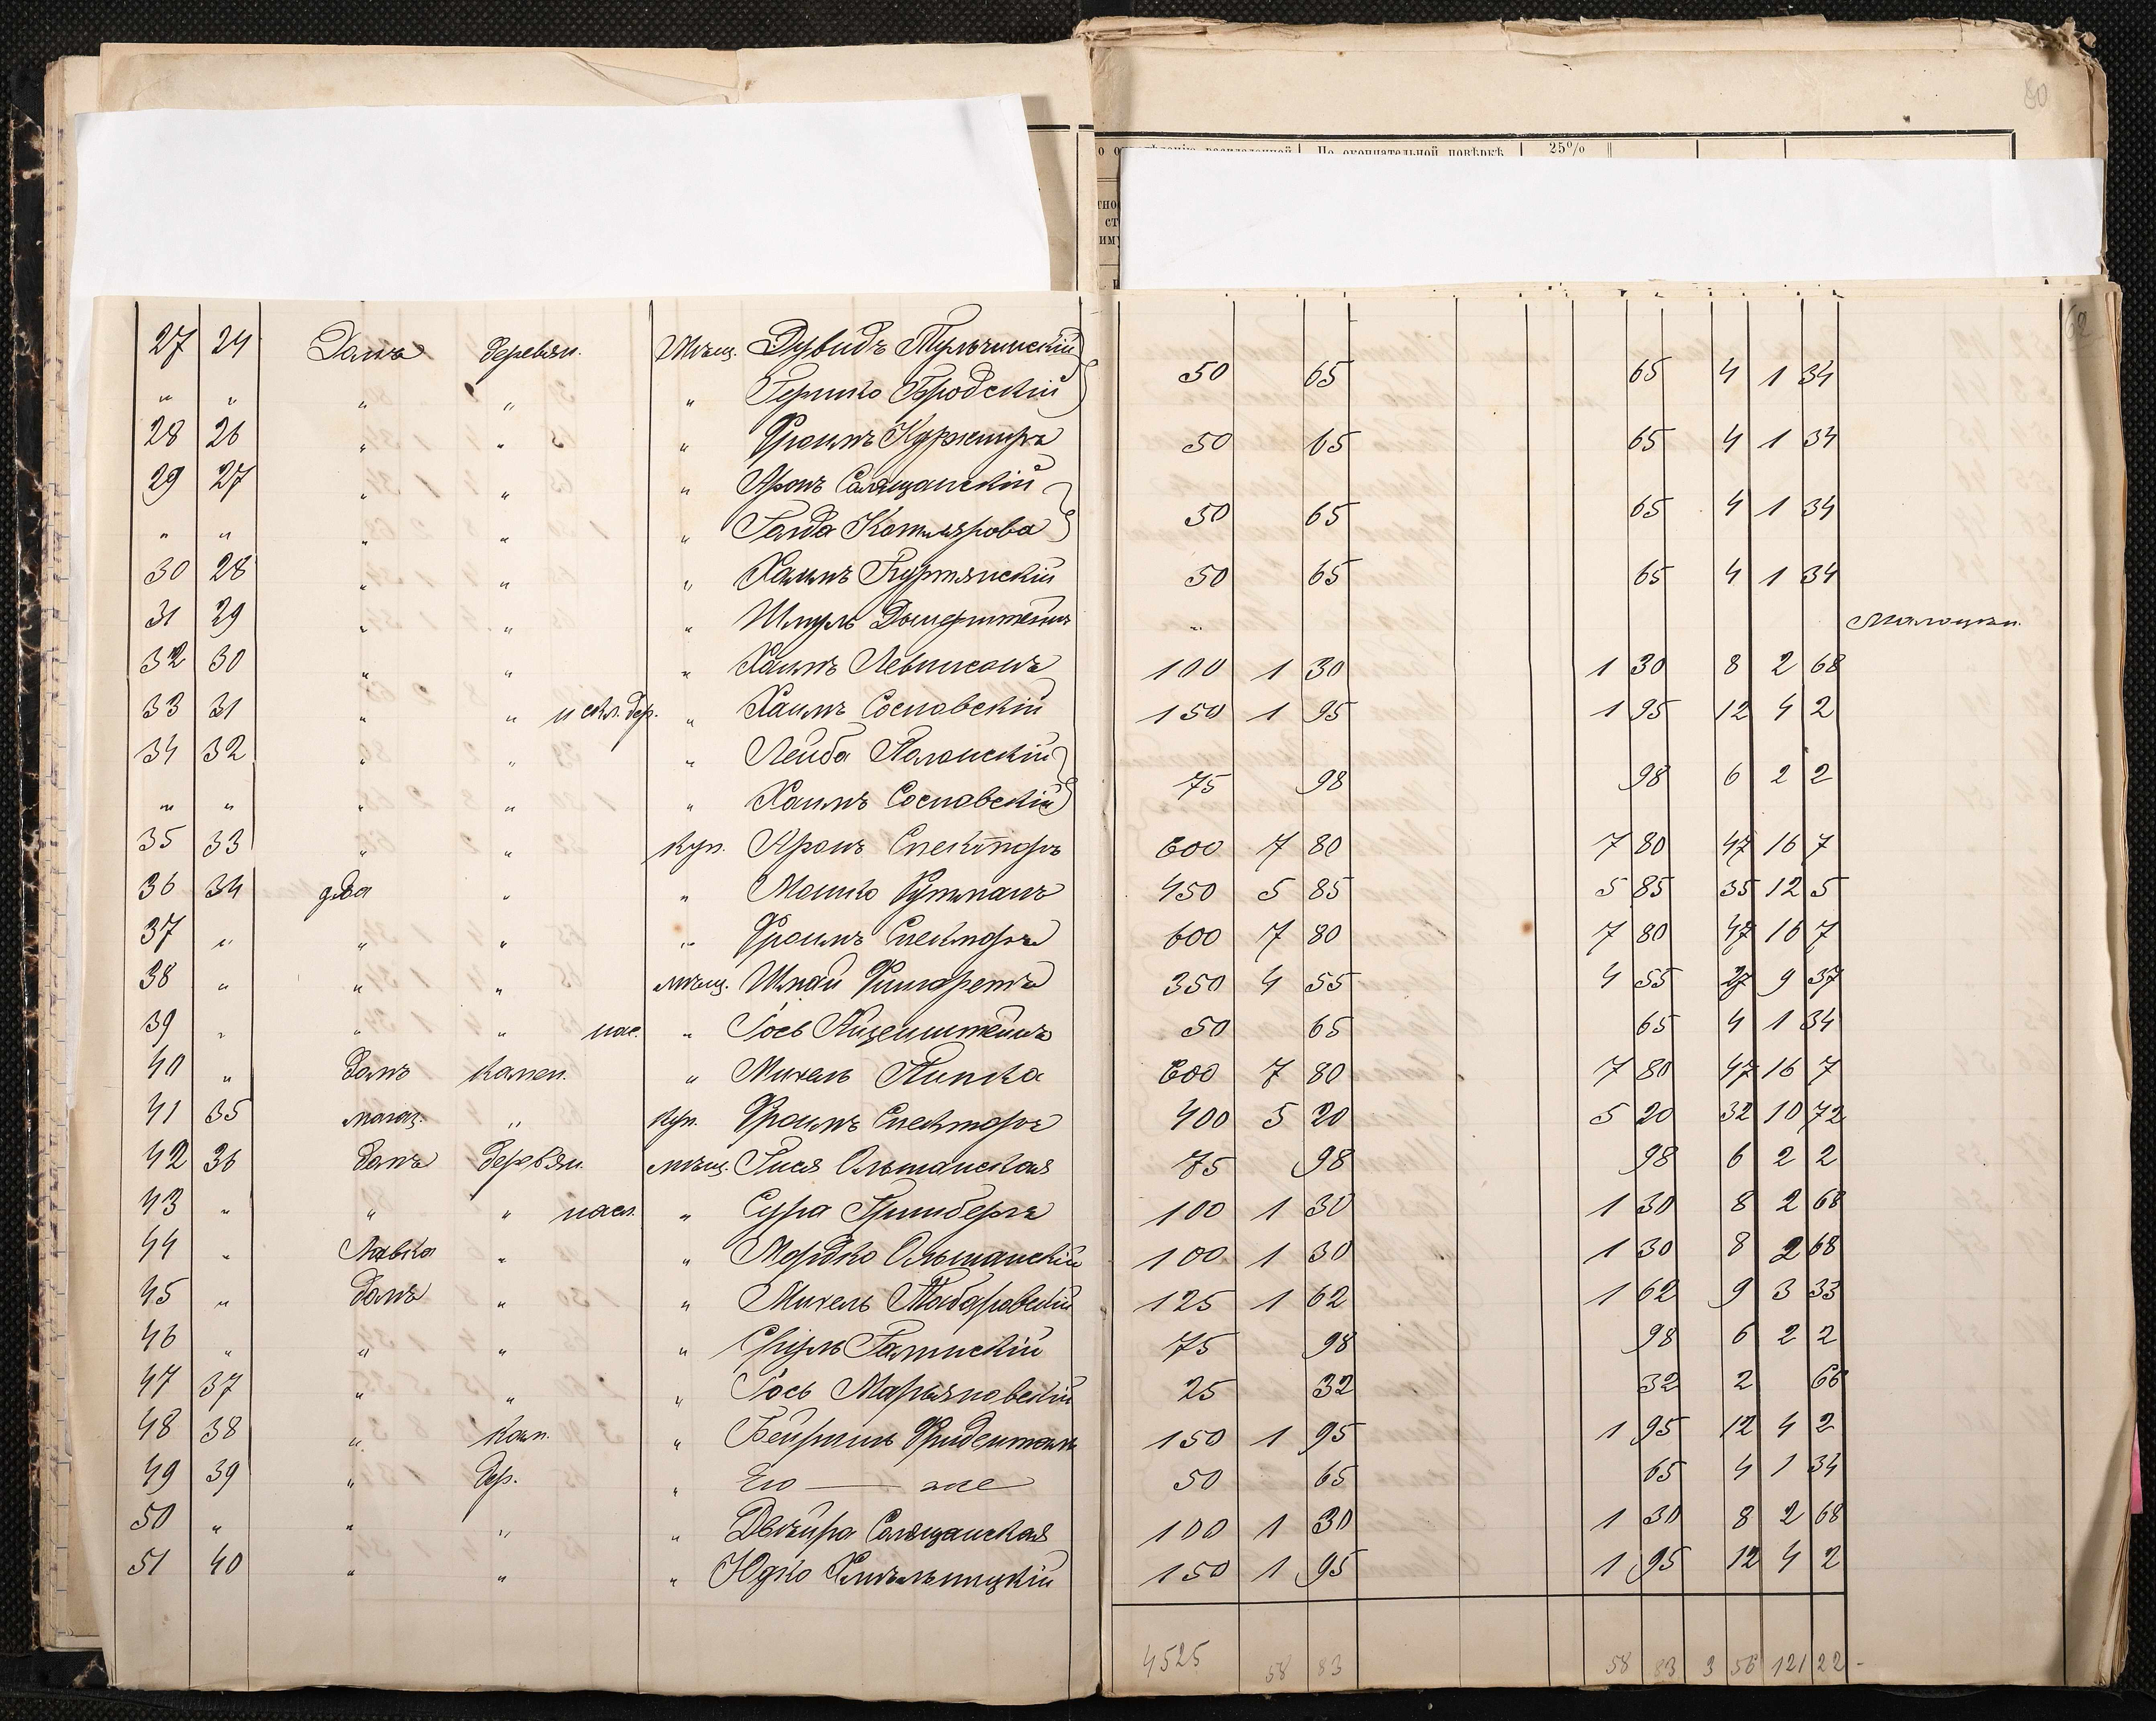 80
25%
По окончательной повѣркѣ
62
27 24 Домъ деревян. Мѣщ. Дувидъ Тульчинскій 50 65 65 4 1 34
" " " " " Гершко Бродскій
28 26 " " " Фроимъ Куржнеръ 50 65 65 4 1 34
29 27 " " " Аронъ Салящанскій 50 65 65 4 1 34
" " " " " Голда Котлярова
30 28 " " " Хаимъ 50 65 65 4 1 34
31 29 " " " Шмуль "
32 30 " " " Хаимъ Левинсонъ 100 1 30 1 30 8 2 68
33 31 " " и скл. дер. " Хаимъ Сосновскій 150 1 95 1 95 12 4 2
34 32 " " " Лейба Полонскій 75 98 98 6 2 2
" " " " " Хаимъ Сосновскій
35 33 " " куп. Аронъ Спекторъ 600 7 80 7 80 47 16 7
36 34 два " " Мошко Гутманъ 450 5 85 5 85 35 12 5
37 " " " " Фроимъ Спекторъ 600 7 80 7 80 47 16 7
38 " " " мѣщ. 350 4 55 4 55 27 9 37
39 " " " нас. " Іось Айзенштейнъ 50 65 65 4 1 34
40 " домъ камен. " Михель Пинска 600 7 80 7 80 47 16 7
41 35 магаз. " куп. Фроимъ Спекторъ 400 5 20 5 20 32 10 72
42 36 домъ деревян. мѣщ. Гися Ольшанская 75 98 98 6 2 2
43 " " " насл. " Сура Гринбергъ 100 1 30 1 30 8 2 68
44 " Лавка " " Мордко Ольшанскій 100 1 30 1 30 8 2 68
45 " домъ " " Михель Таборовскій 125 1 62 1 62 9 3 33
46 " " " " Сруль Галинскій 75 98 98 6 2 2
47 37 " " " Іось Марьяновскій 25 32 32 2 66
48 38 " кам. " Фридентан 150 1 95 1 95 12 4 2
49 39 " дер. " Его — же 50 65 65 4 1 34
50 " " " " Двейра Салящанская 100 1 30 1 30 8 2 68
51 40 " " " Юдко Хмѣльницкій 150 1 95 1 95 12 4 2
4525 58 83 58 83 3 56 121 22